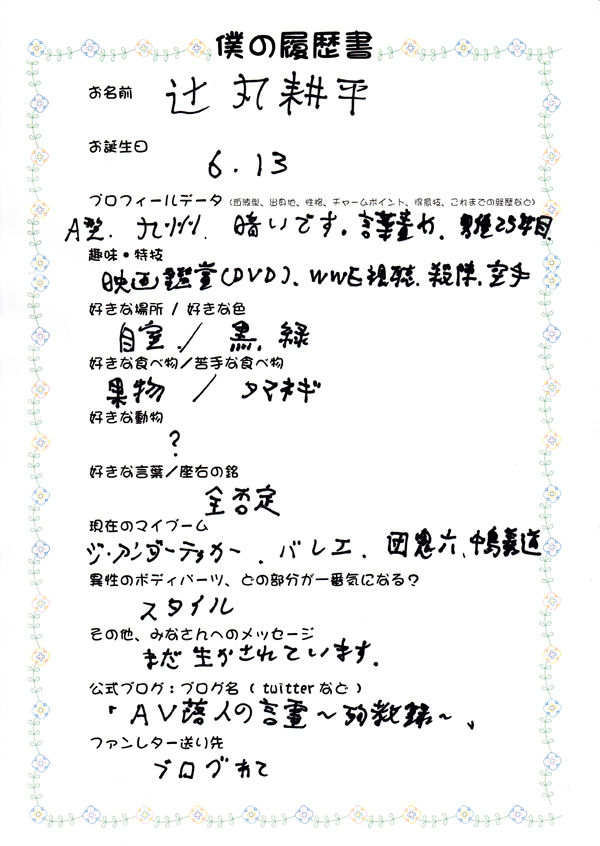 僕の履歴書
お名前 辻丸耕平
お誕生日
6.13
プロフィールデータ (血液型、出身地、性格、チャームポイント、得意技、これまでの経歴など)
A型、九州、暗いです。言葉責め、男優25年目、
趣味・特技
映画鑑賞(DVD)、WWE視聴、殺陣、空手
好きな場所 / 好きな色
自室 / 黒、緑
好きな食べ物/苦手な食べ物
果物 / タマネギ
好きな動物
?
好きな言葉/座右の銘
全否定
現在のマイブーム
ジ・アンダーテイカー、バレエ、団鬼六、中島義道
異性のボディパーツ、どの部分が一番気になる?
スタイル
その他、みなさんへのメッセージ
まだ生かされています。
公式ブログ:ブログ名 ( twitterなど )
「AV落人の言霊〜殉教録〜」
ファンレター送り先
ブログあて